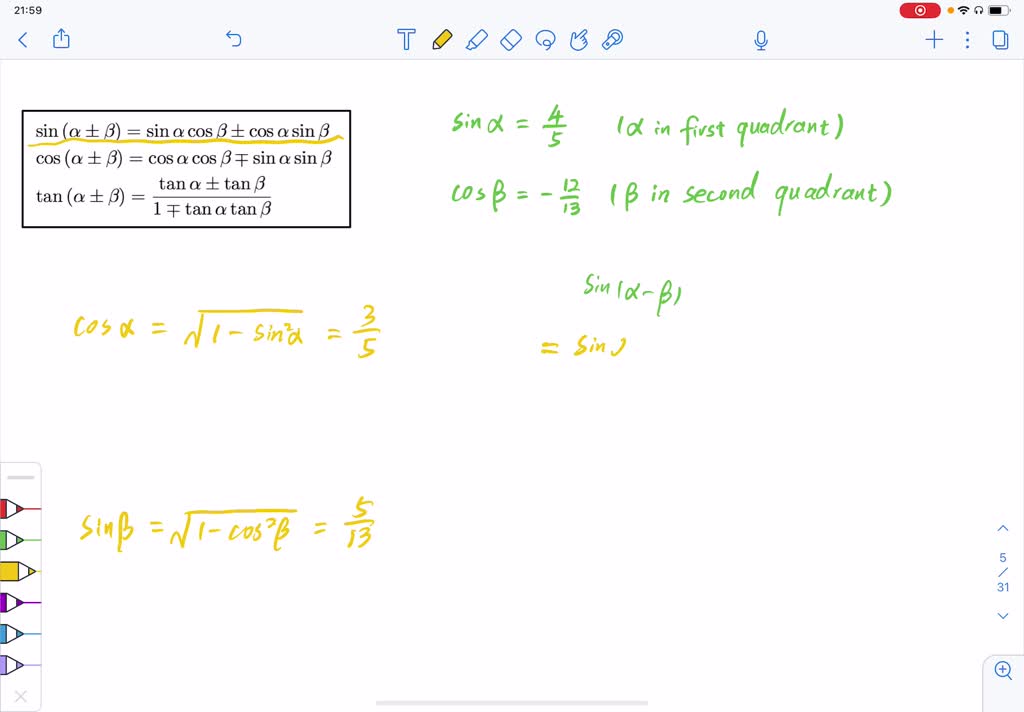 21:59
sin (α ± β) = sin α cos β ± cos α sin β
cos (α ± β) = cos α cos β ∓ sin α sin β
tan (α ± β) = (tan α ± tan β) / (1 ∓ tan α tan β)
sin α = 4/5 (α in first quadrant)
cos β = - 12/13 (β in second quadrant)
sin(α-β)
cos α = √(1 - sin²α) = 3/5
= sin
sin β = √(1 - cos²β) = 5/13
5
/
31